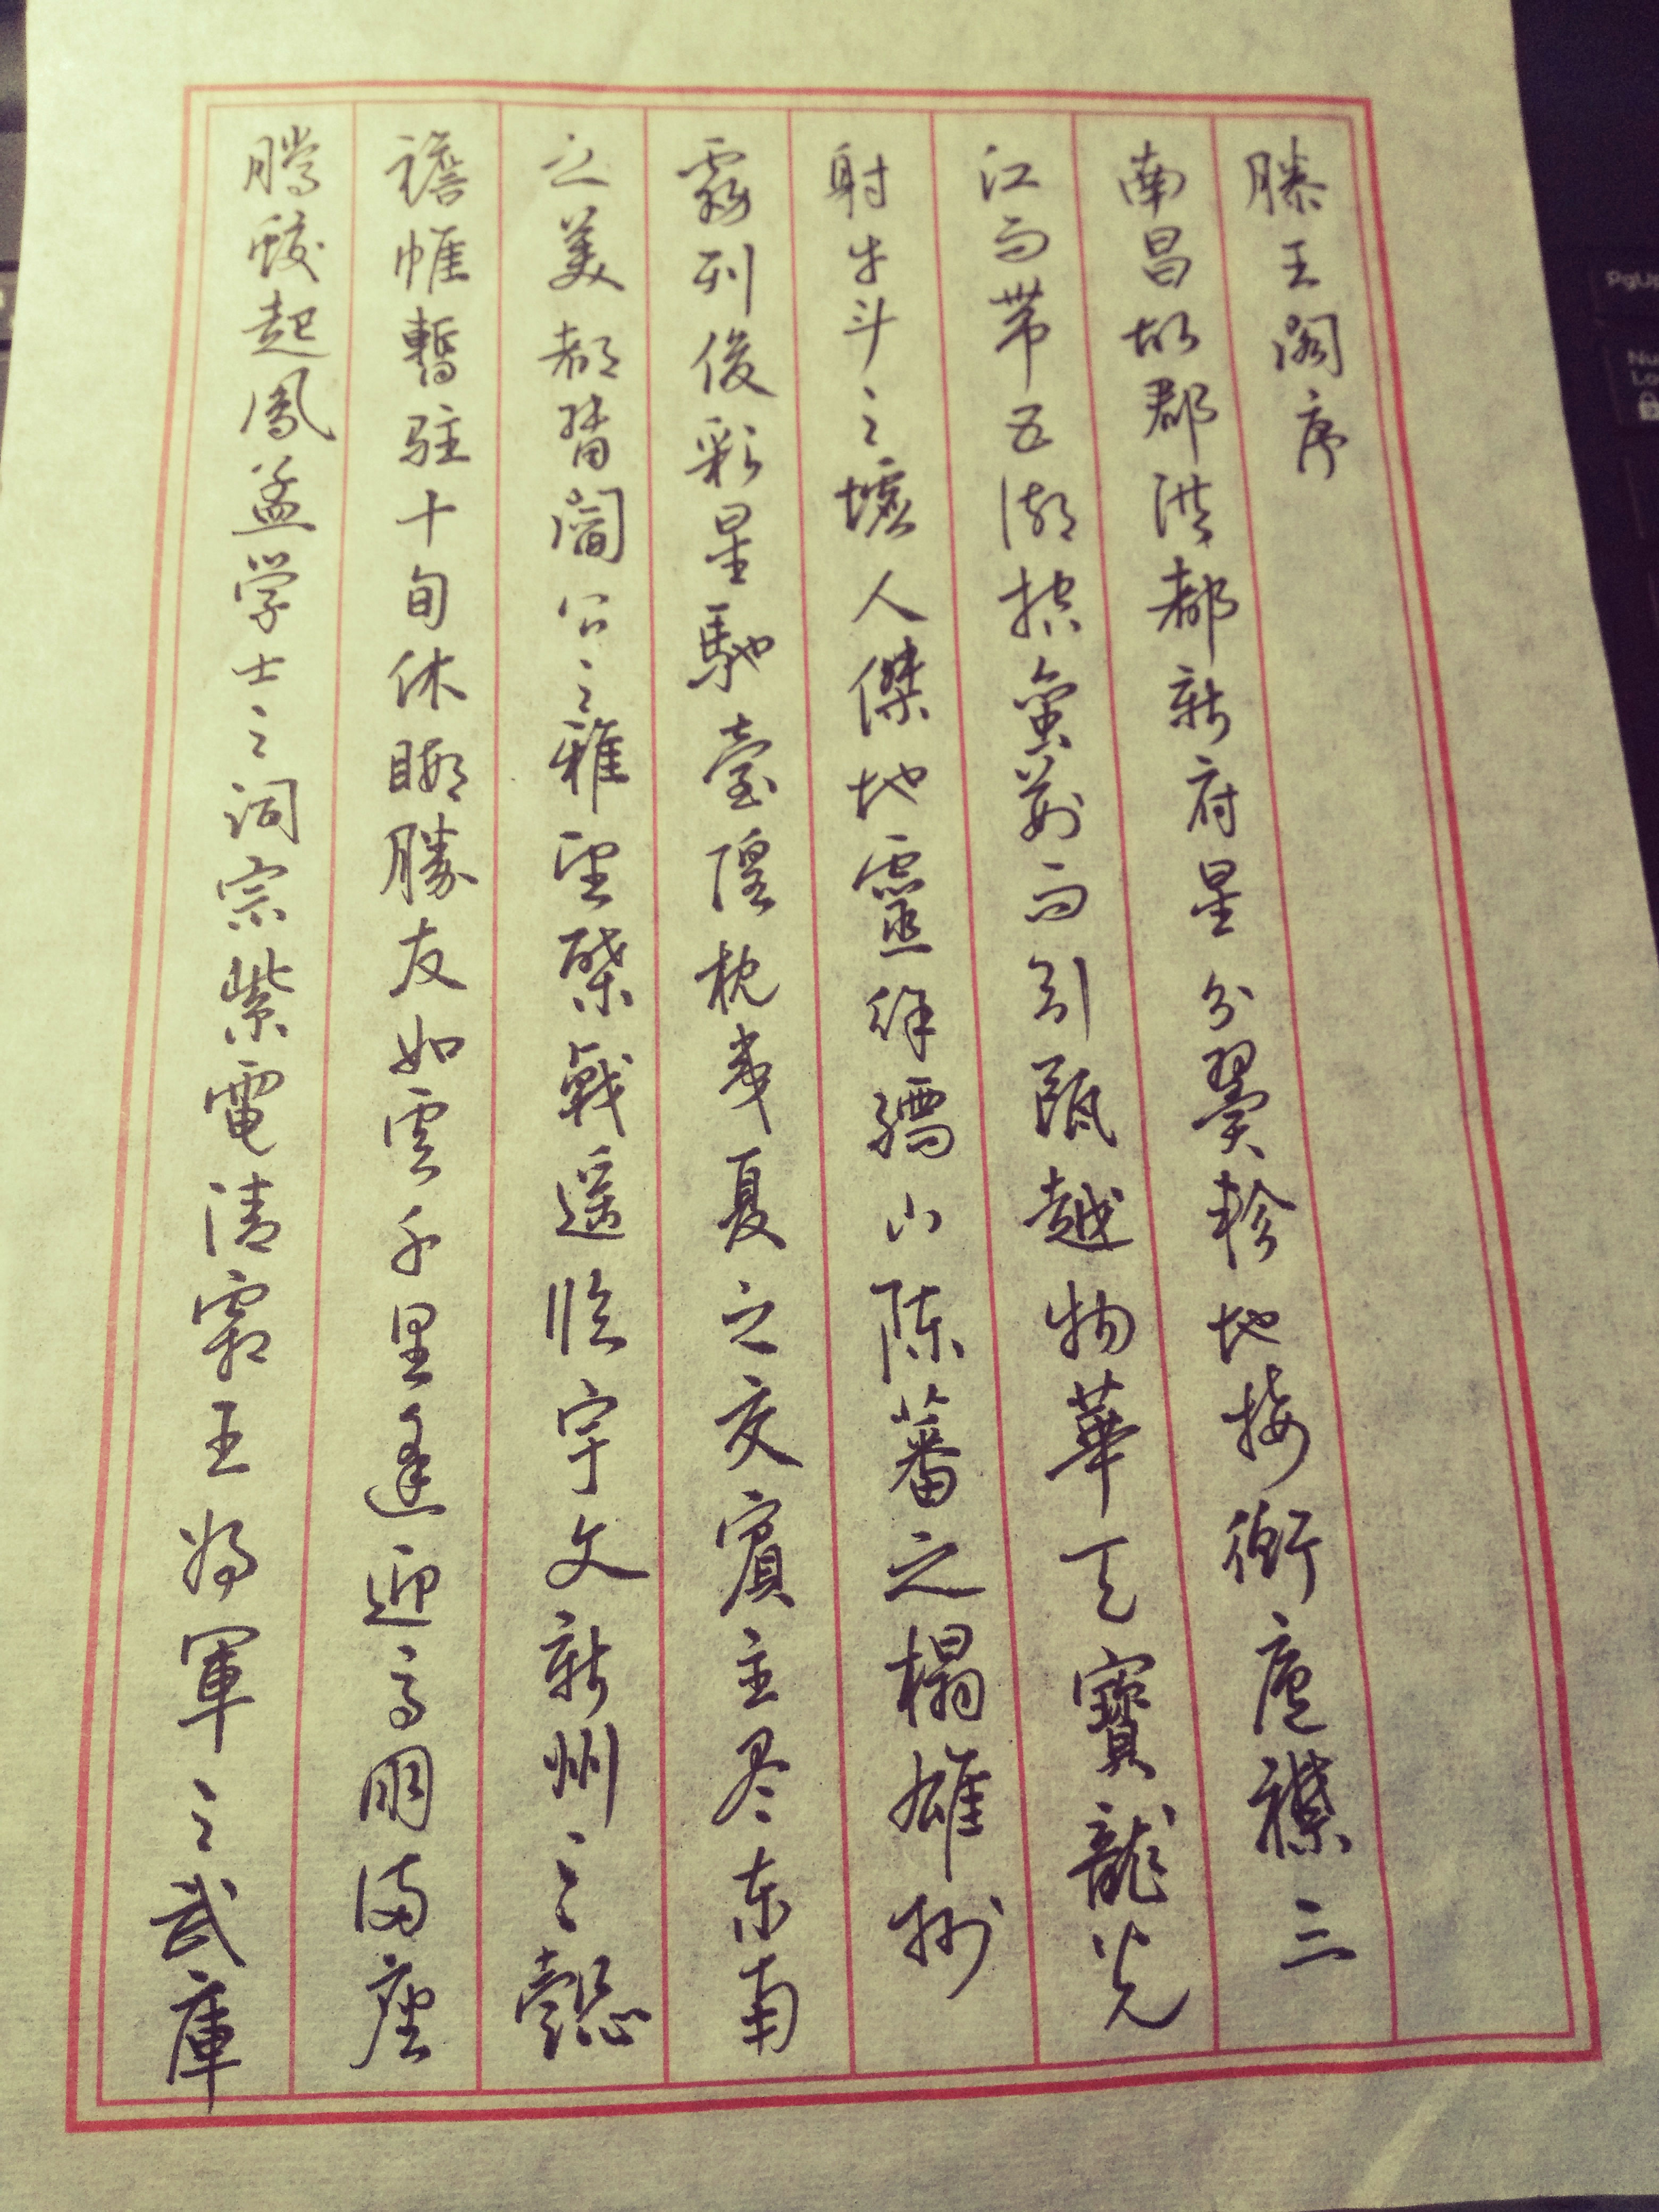 滕王阁序
南昌故郡洪都新府星分翼軫地接衡廬襟三
江而帶五湖控蠻荆而引甌越物華天寶龍光
射牛斗之墟人傑地靈徐孺下陈蕃之榻雄州
霧列俊彩星馳臺隍枕夷夏之交賓主尽东南
之美都督閻公之雅望棨戟遥临宇文新州之懿
襜帷暫駐十旬休暇勝友如雲千里逢迎高朋满座
騰蛟起鳳孟学士之词宗紫電清霜王将軍之武庫
PgUp